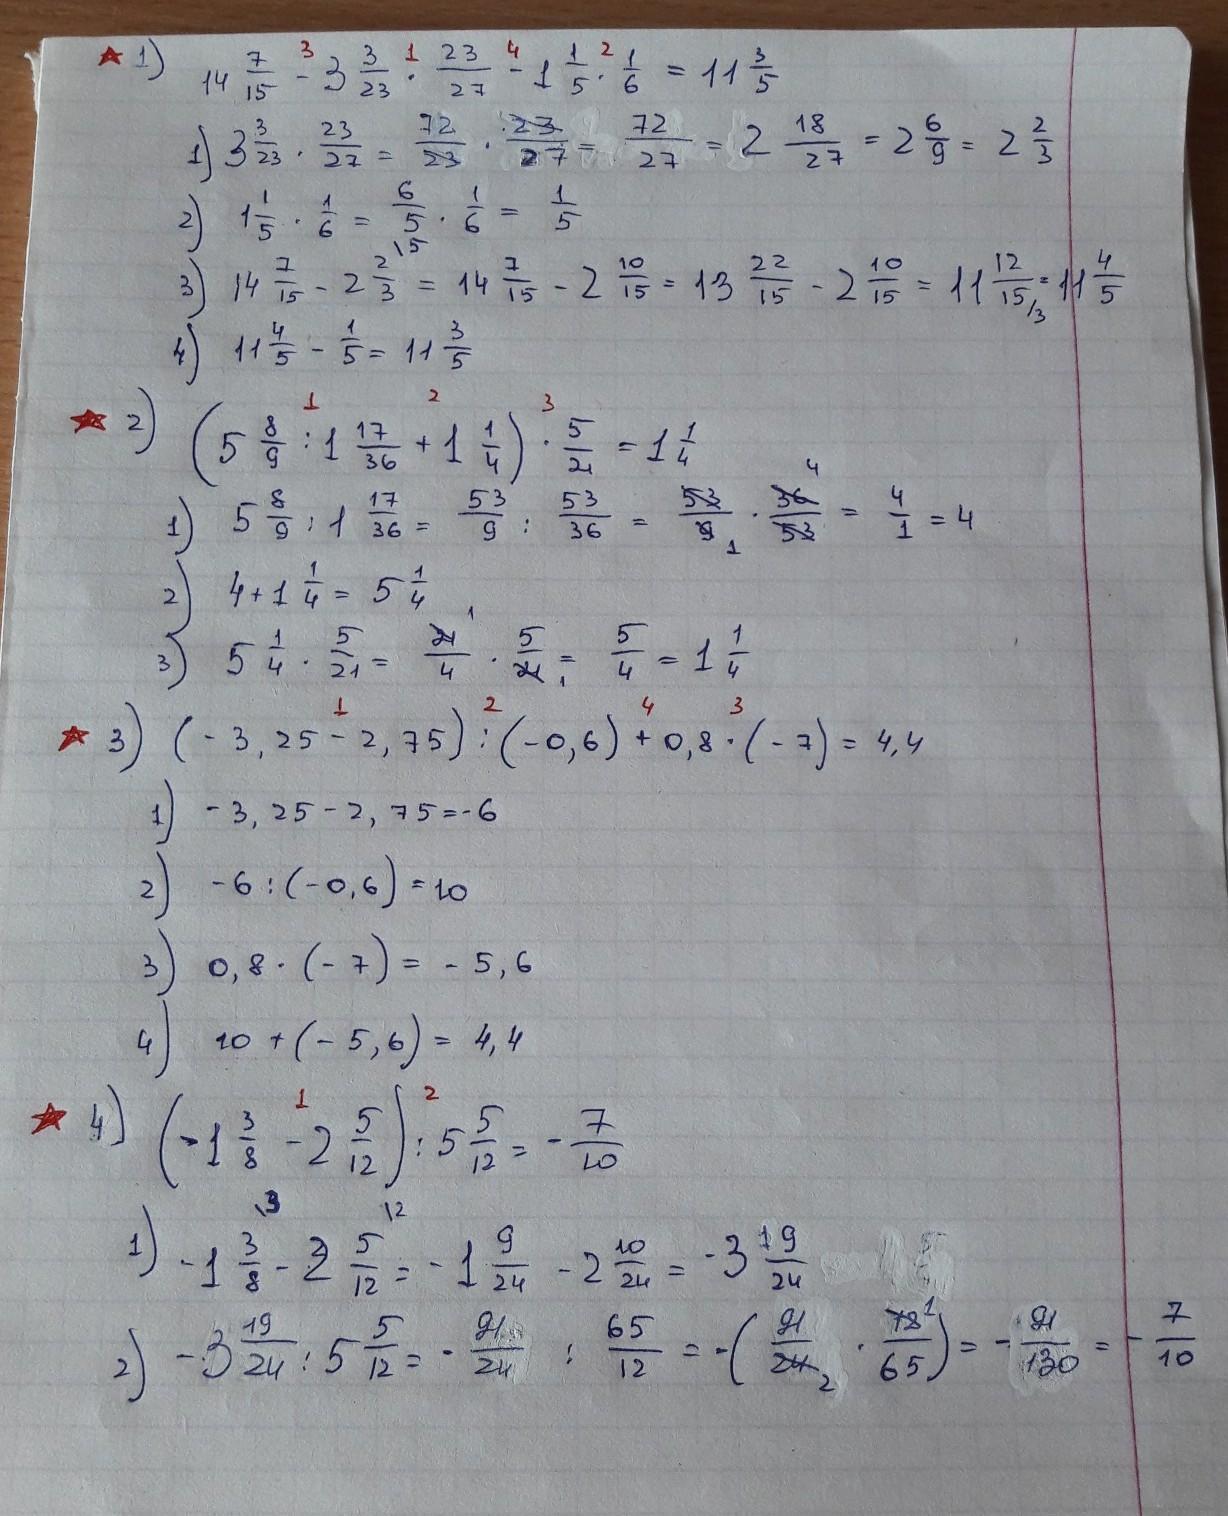 ★ 1) 14 7/15 - 3 3/23 · 23/27 - 1 1/5 · 1/6 = 11 3/5
1) 3 3/23 · 23/27 = 72/23 · 23/27 = 72/27 = 2 18/27 = 2 6/9 = 2 2/3
2) 1 1/5 · 1/6 = 6/5 · 1/6 = 1/5
3) 14 7/15 - 2 2/3 \5 = 14 7/15 - 2 10/15 = 13 22/15 - 2 10/15 = 11 12/15 /3 = 11 4/5
4) 11 4/5 - 1/5 = 11 3/5
★ 2) (5 8/9 : 1 17/36 + 1 1/4) · 5/21 = 1 1/4
1) 5 8/9 : 1 17/36 = 53/9 : 53/36 = 53/9 · 36/53 = 4/1 = 4
2) 4 + 1 1/4 = 5 1/4
3) 5 1/4 · 5/21 = 21/4 · 5/21 = 5/4 = 1 1/4
★ 3) (- 3,25 - 2,75) : (-0,6) + 0,8 · (- 7) = 4,4
1) - 3,25 - 2,75 = -6
2) -6 : (-0,6) = 10
3) 0,8 · (- 7) = - 5,6
4) 10 + (- 5,6) = 4,4
★ 4) (-1 3/8 - 2 5/12) : 5 5/12 = - 7/10
1) -1 3/8 \3 - 2 5/12 \2 = -1 9/24 - 2 10/24 = -3 19/24
2) -3 19/24 : 5 5/12 = - 91/24 : 65/12 = -(91/24 · 12/65) = - 91/130 = - 7/10